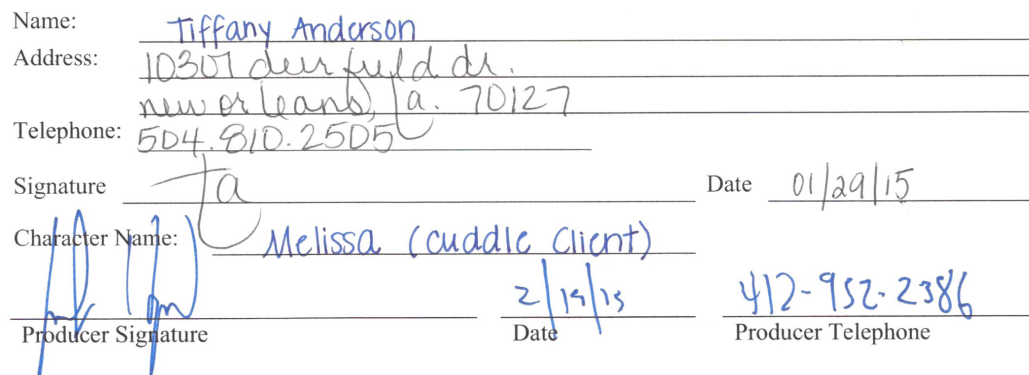 Name: Tiffany Anderson
Address: 10307 deer field dr.
new orleans, la. 70127
Telephone: 504.810.2505
Signature ta Date 01/29/15
Character Name: Melissa (cuddle client)
2/19/15 412-952-2386
Producer Signature Date Producer Telephone